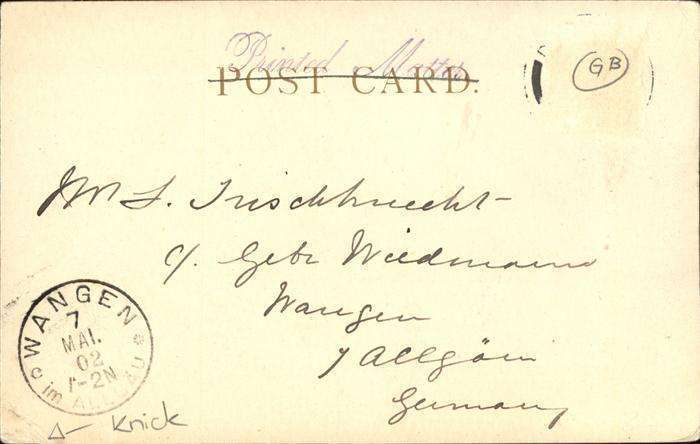 Printed Matter
POST CARD.
GB
Mr L. Frischknecht
c/. Gebr Wiedmann
Wangen
/ Allgäu
Germany
WANGEN
7
MAI.
02
1-2N
im ALLGÄU
Knick